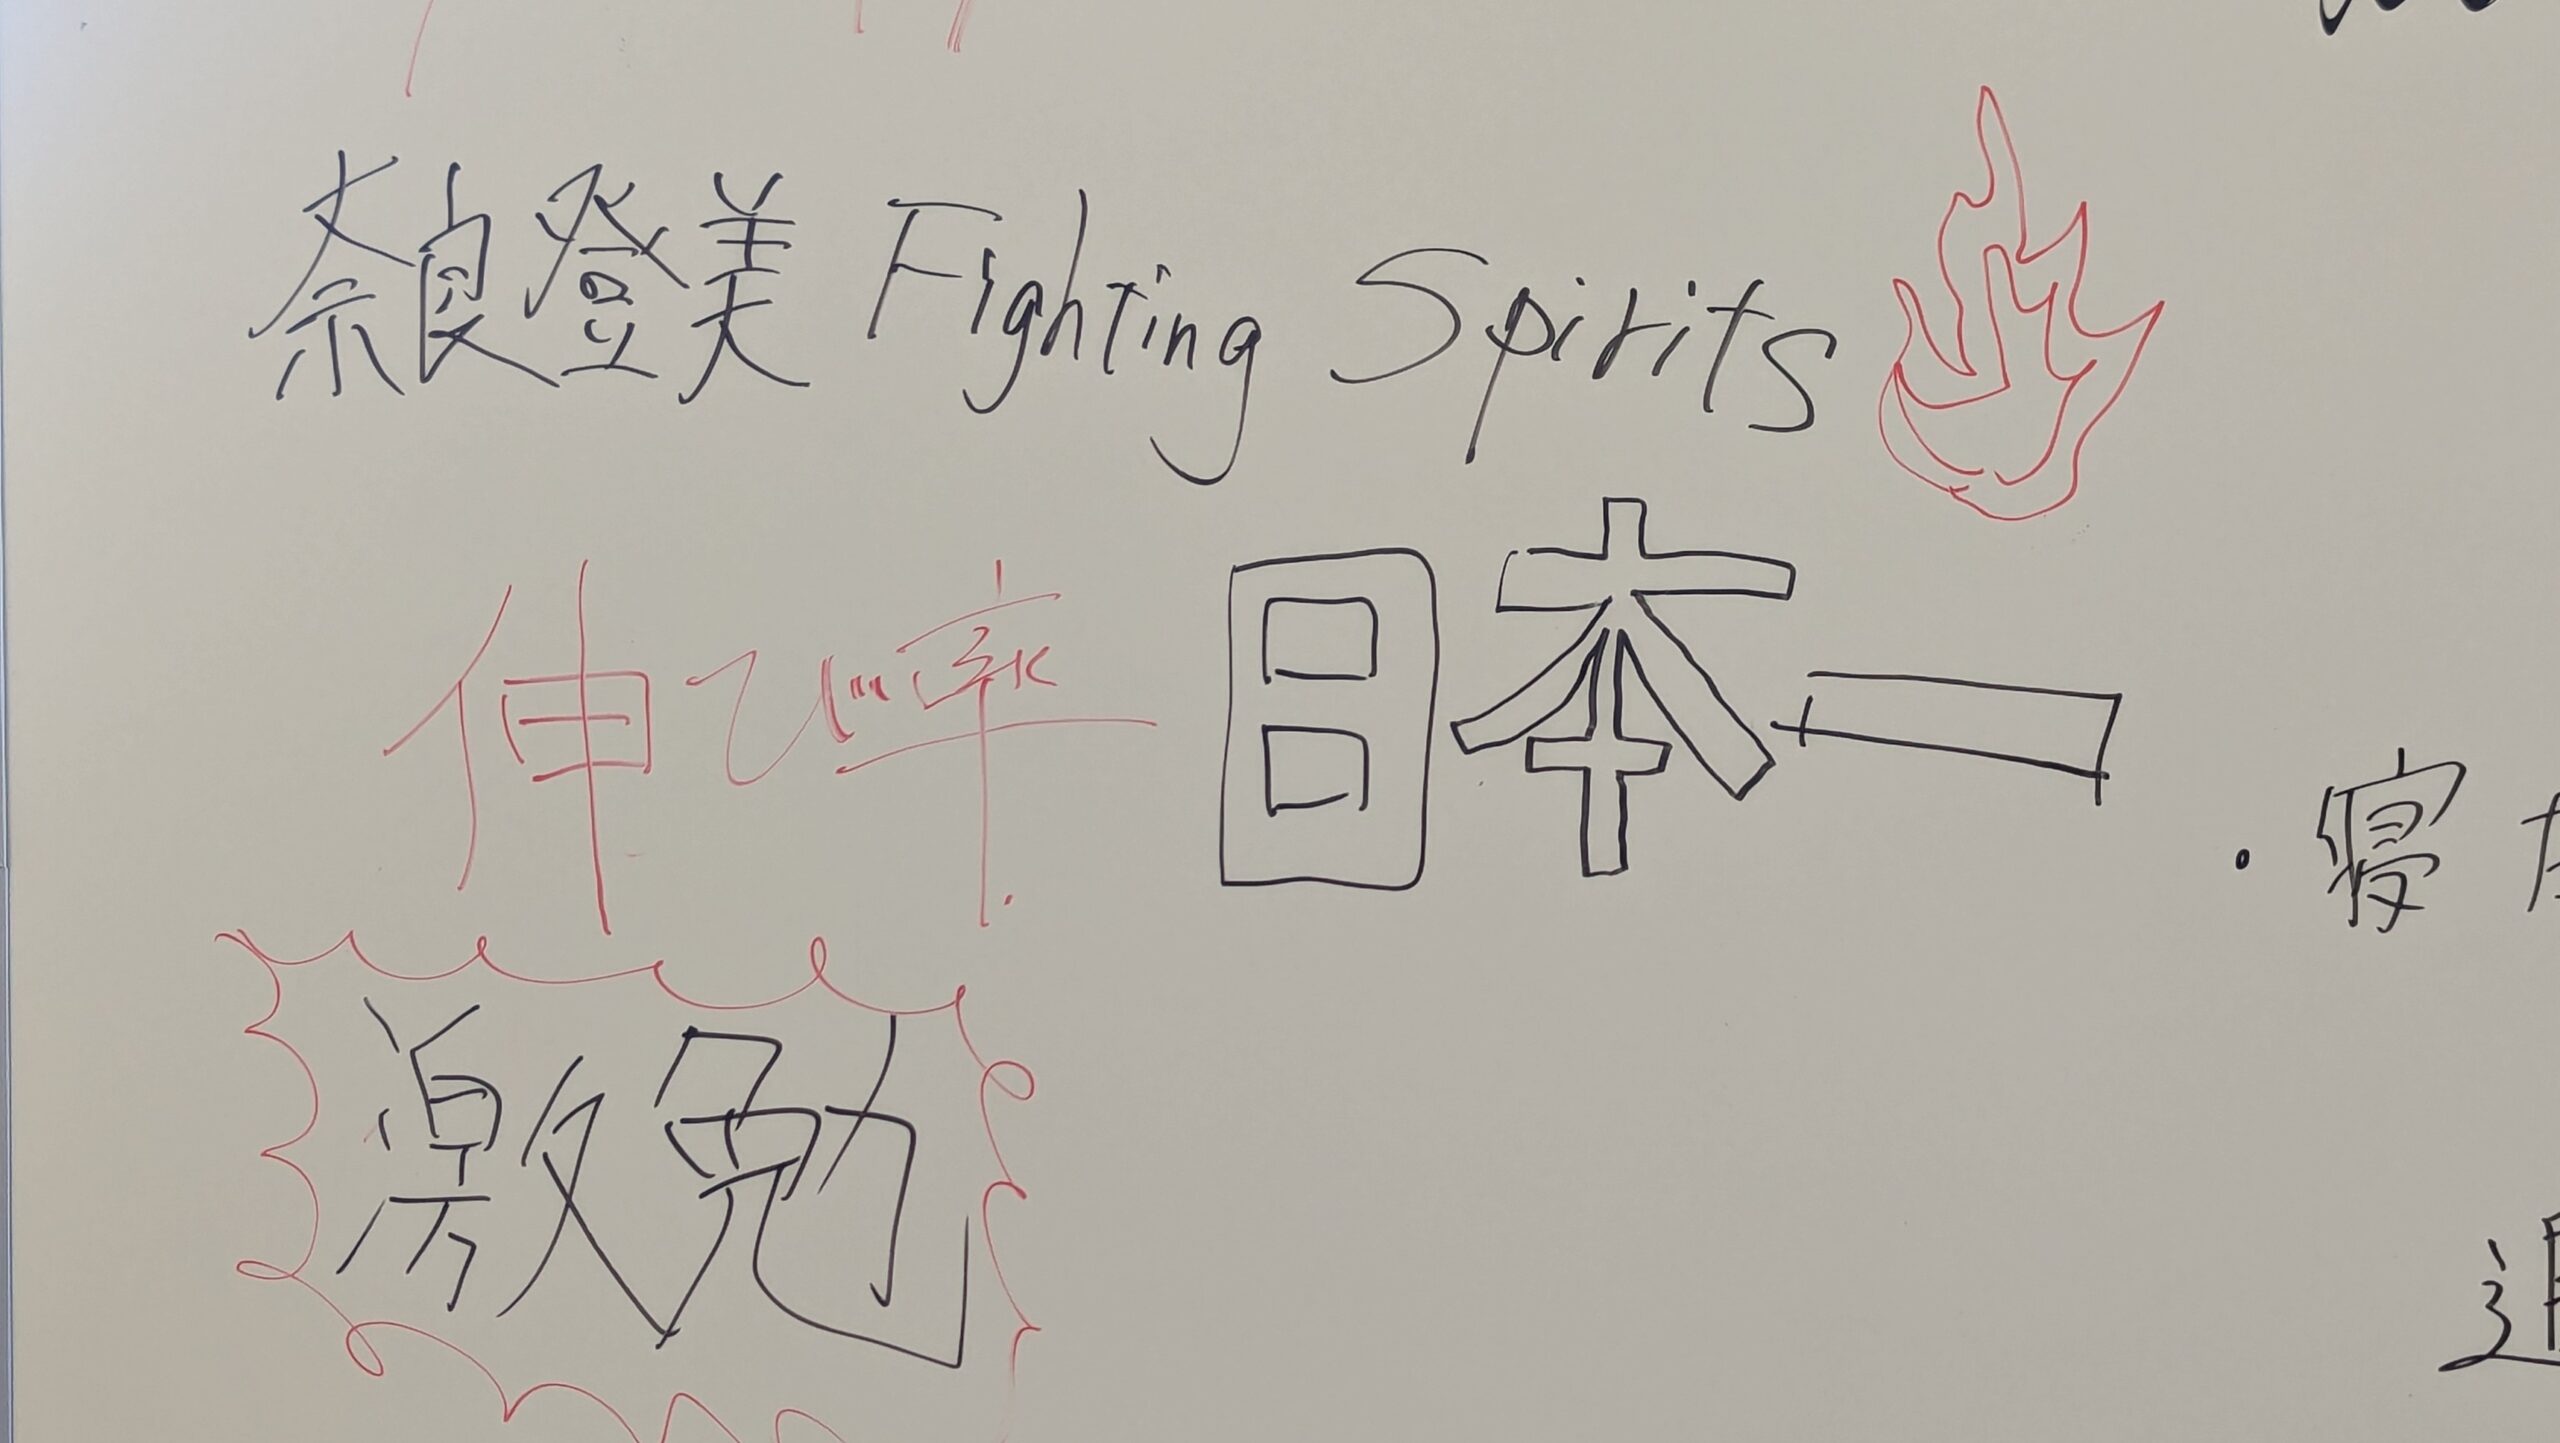 奈良登美 Fighting Spirits
伸び率日本一
・寝
激勉